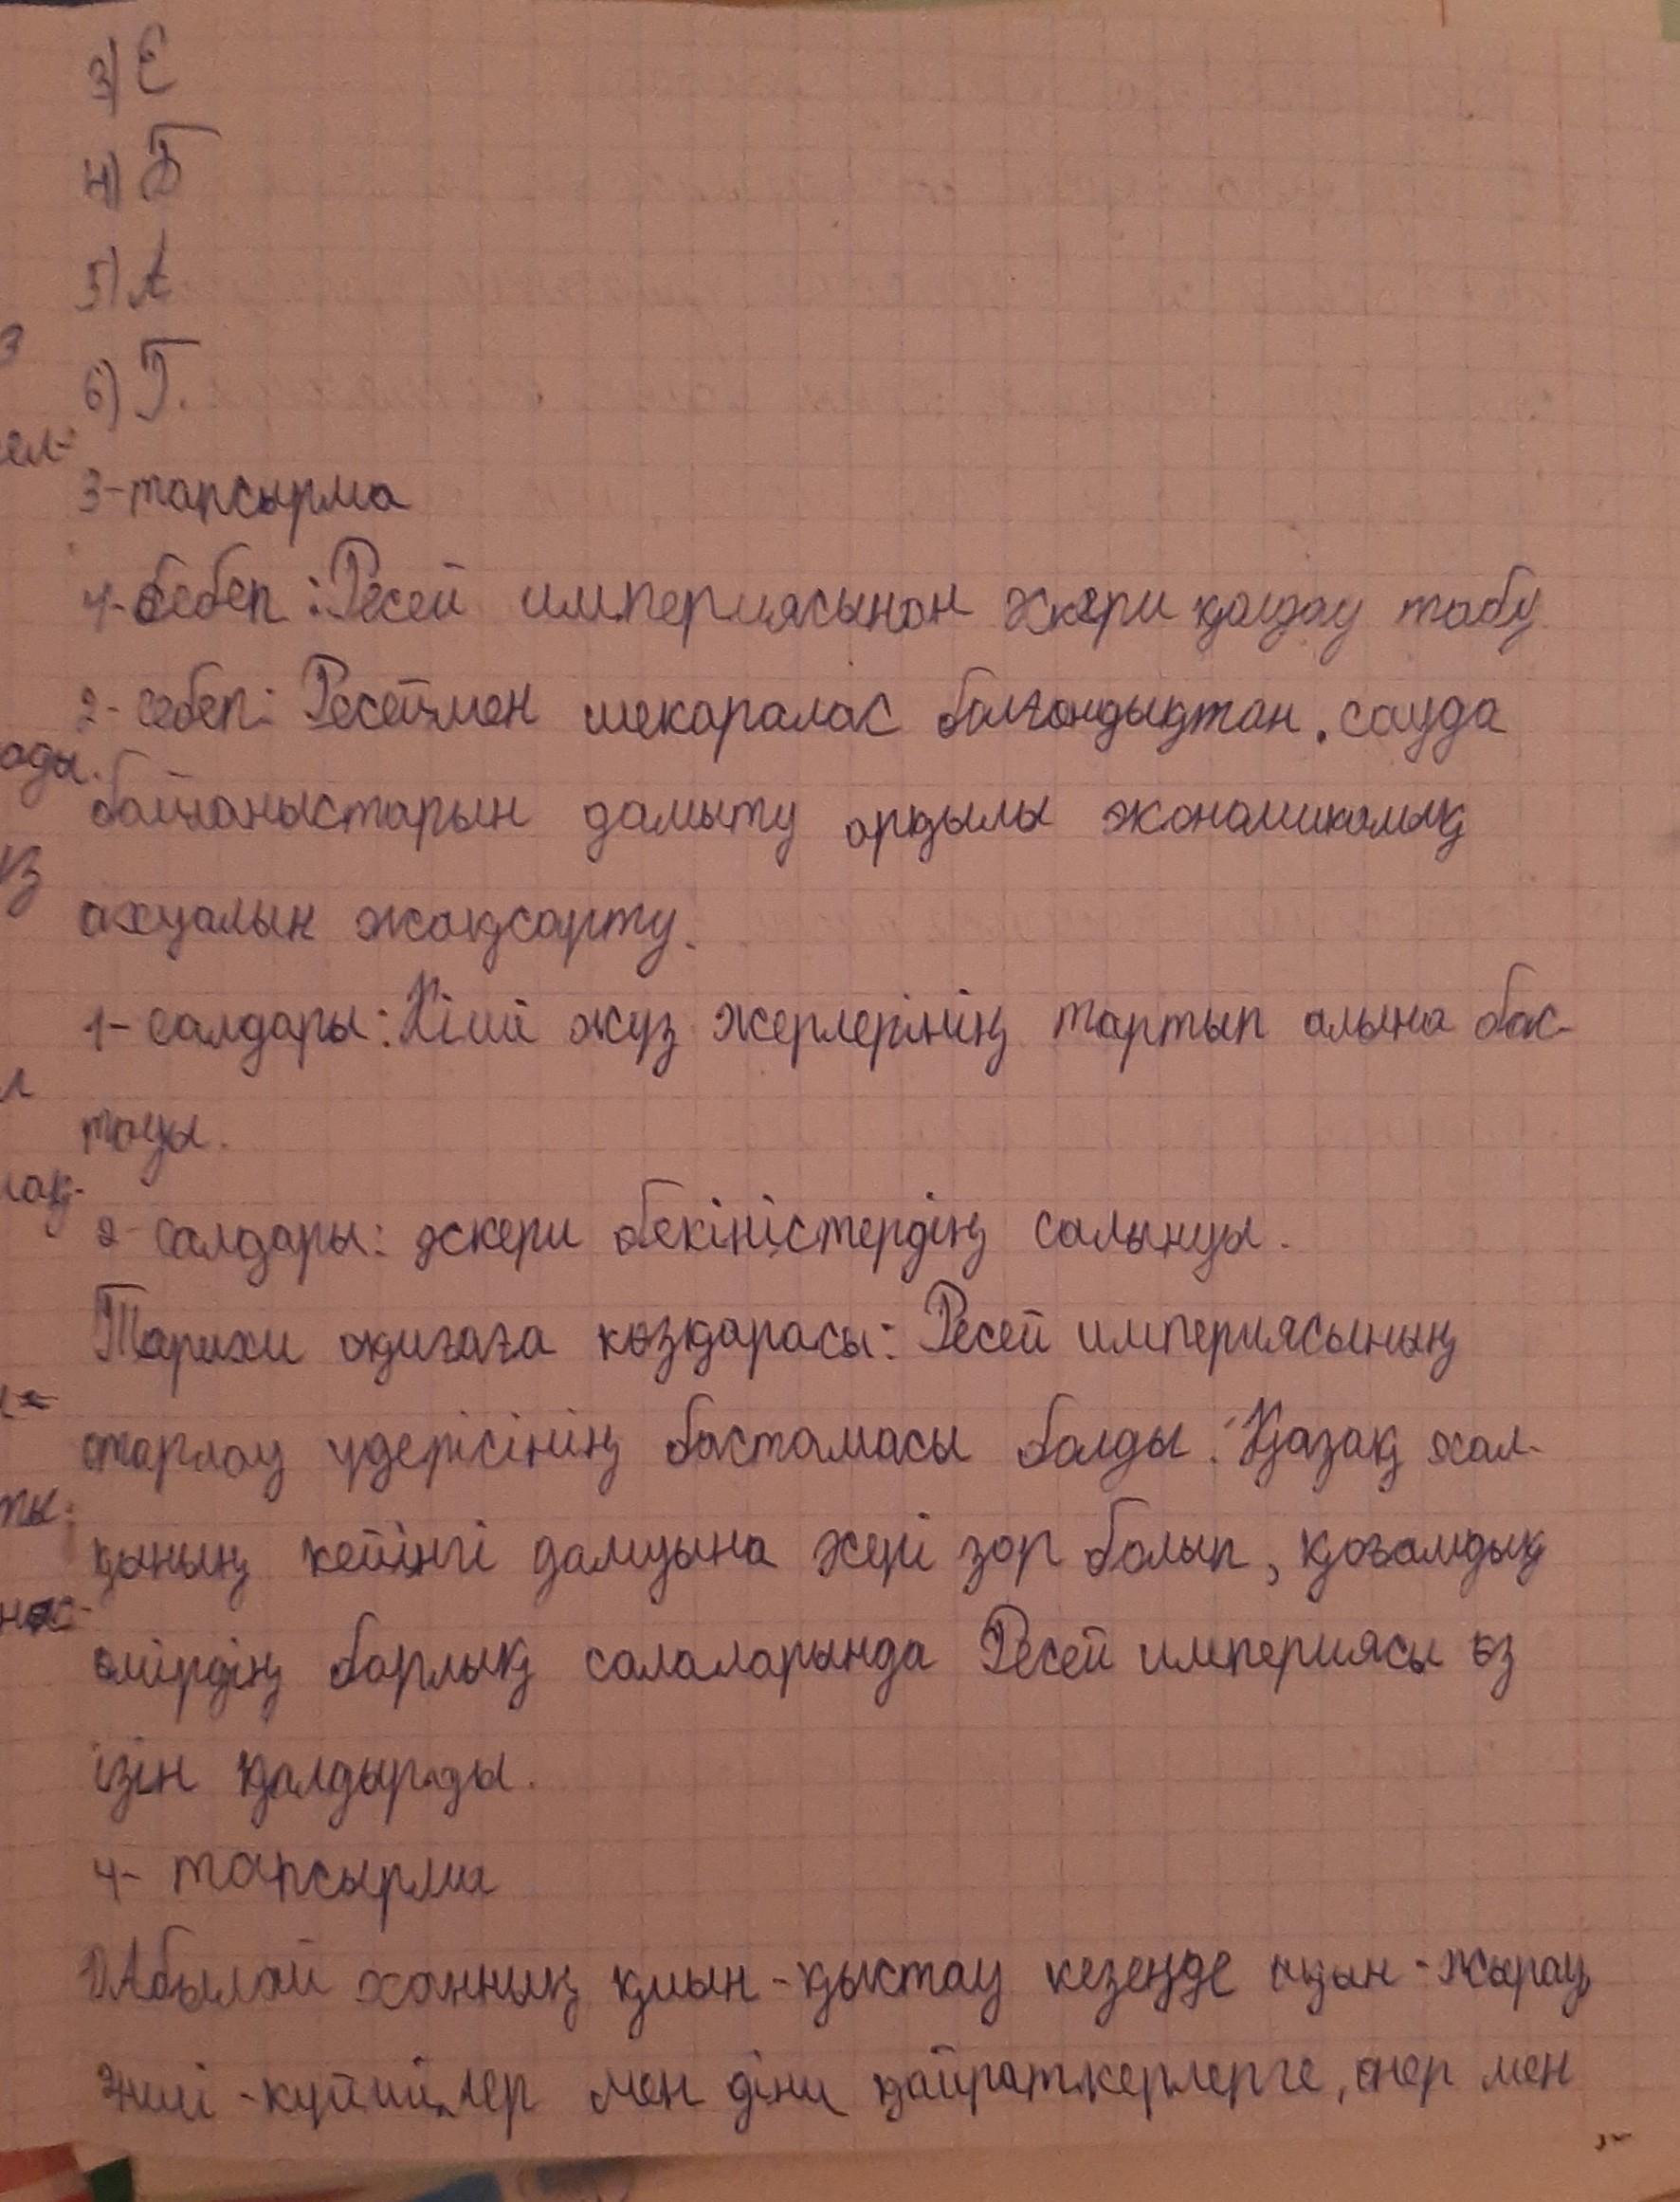 3) Е
4) Б
5) А
6) Г.
3-тапсырма
1-себеп: Ресей империясынан әскери қолдау табу
2-себеп: Ресеймен шекаралас болғандықтан. сауда
байланыстарын дамыту арқылы экономикалық
ахуалын жақсарту.
1-салдары: Кіші жүз жерлерінің тартып алына бас-
тауы.
2-салдары: әскери бекіністердің салынуы.
Тарихи оқиғаға көзқарасы: Ресей империясының
отарлау үдерісінің бастамасы болды. Қазақ хал-
қының кейінгі дамуына әсері зор болып, қоғамдық
өмірдің барлық салаларында Ресей империясы өз
ізін қалдырды.
4-тапсырма
1) Абылай ханның қиын-қыстау кезеңде ақын-жырау,
әнші-күйшілер мен діни қайраткерлерге, өнер мен